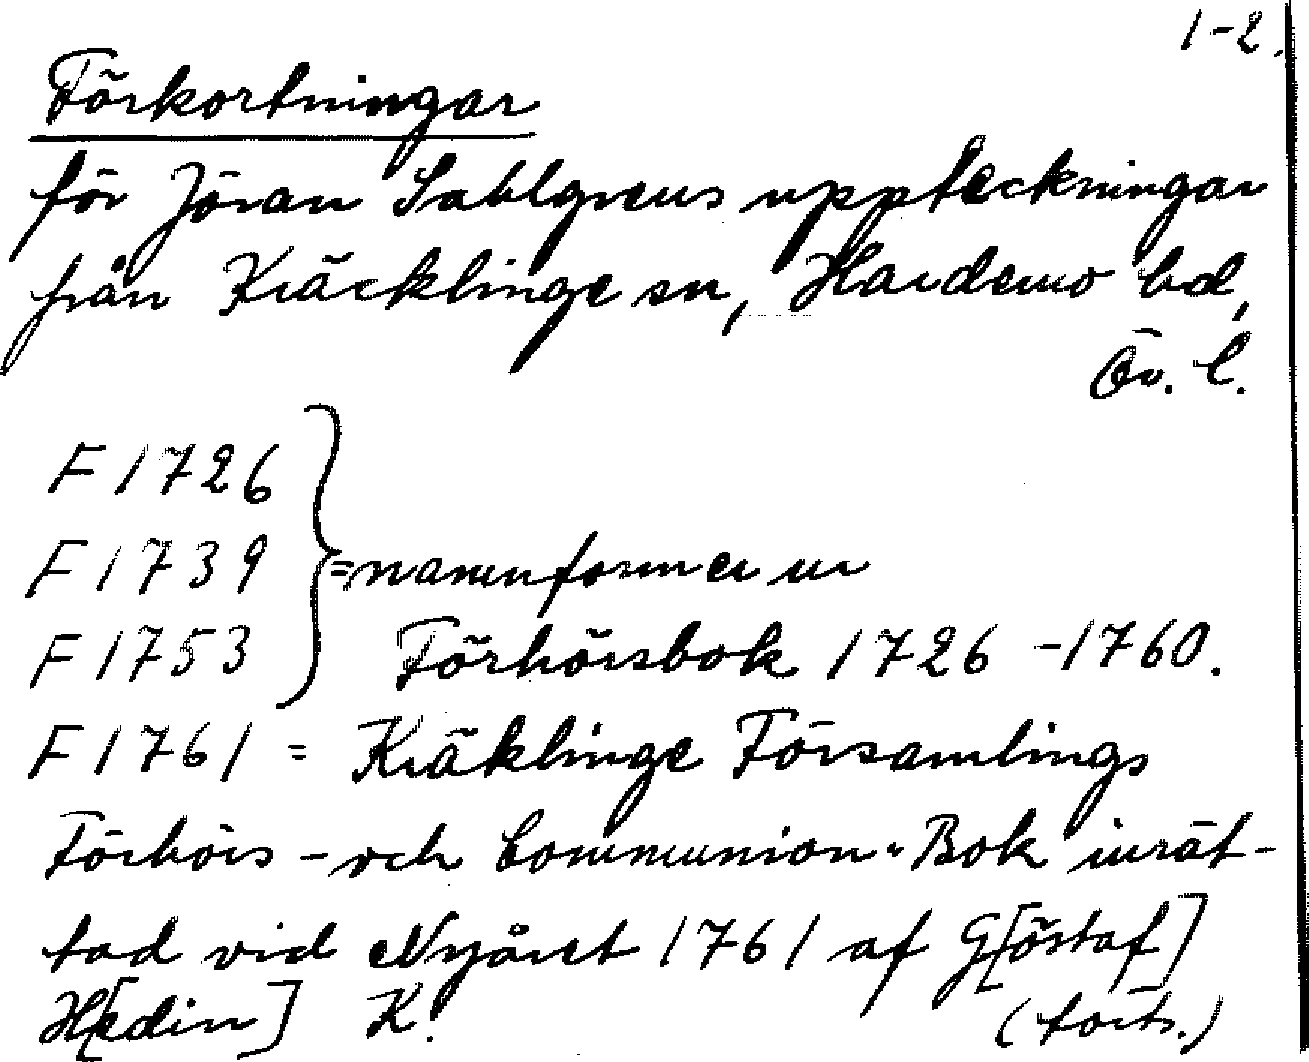 1-2.
Förkortningar
för Jöran Sahlgrens uppteckningar
från Kräcklinge sn, Hardemo hd,
Ör. l.
F 1726
F 1739 } = namnformer ur
F 1753 Förhörsbok 1726-1760.
F 1761 = Kräklinge Församlings
Förhörs- och Communion-Bok inrät-
tad vid Nyåret 1761 af G[östaf]
H[edin] K.
(forts.)